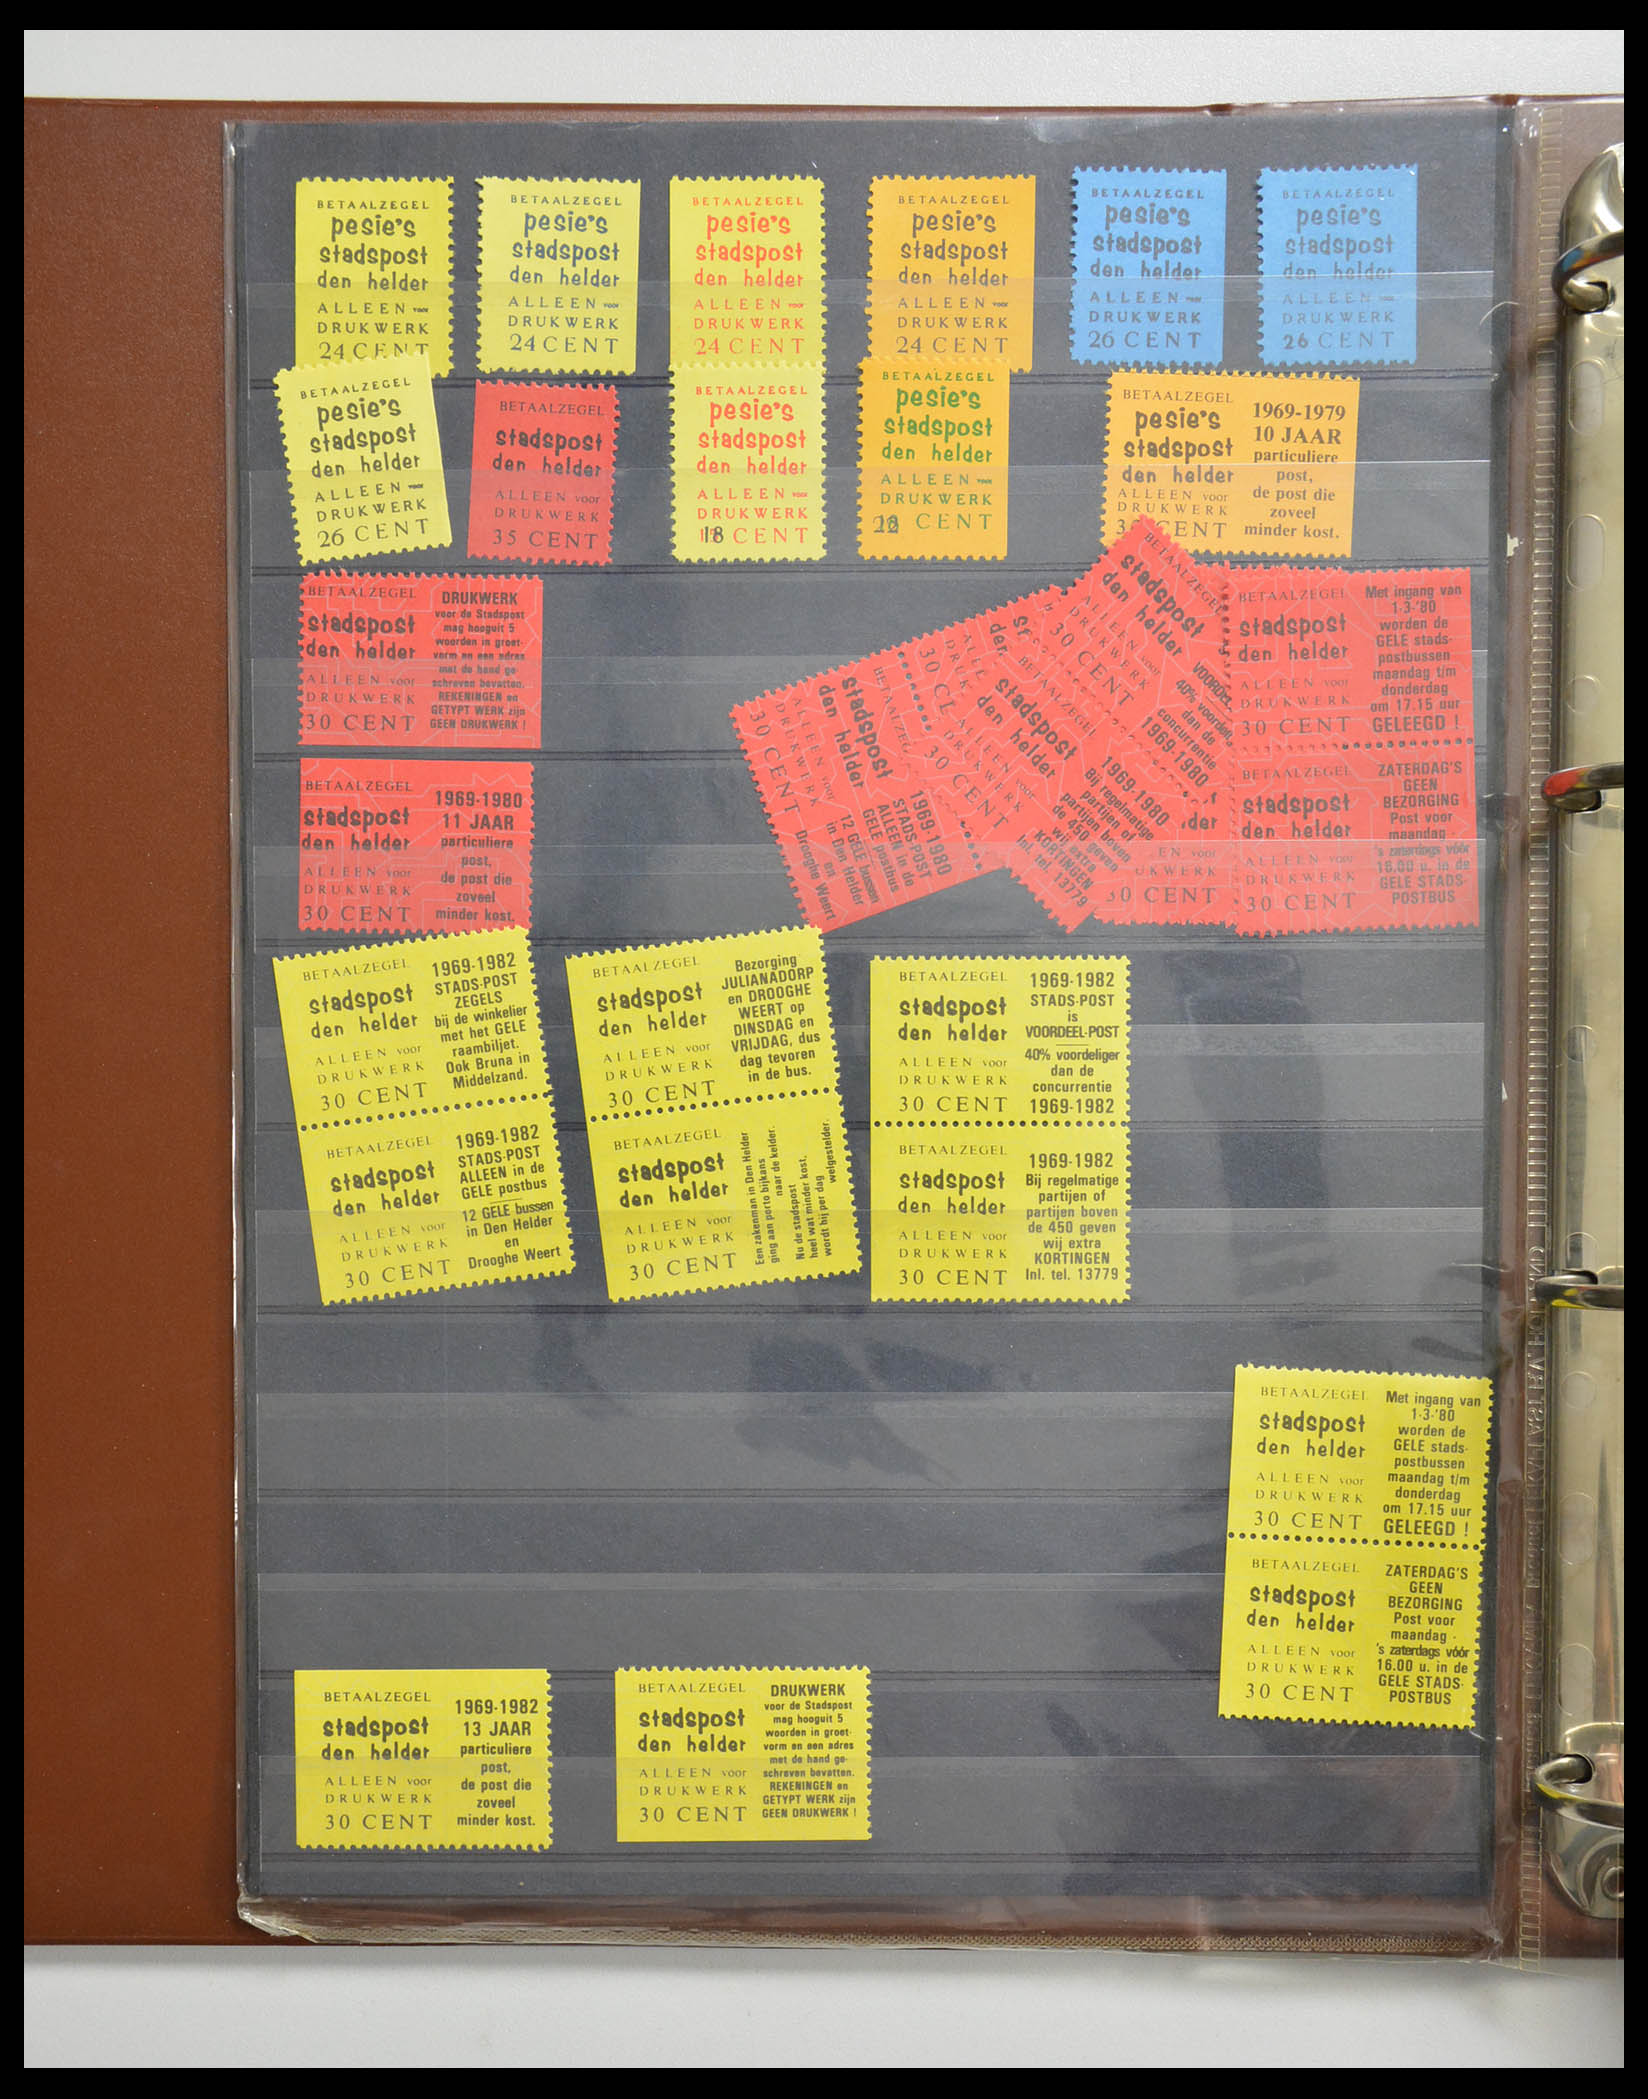 BETAALZEGEL
pesie's
stadspost
den helder
ALLEEN voor
DRUKWERK
24 CENT
BETAALZEGEL
pesie's
stadspost
den helder
ALLEEN voor
DRUKWERK
24 CENT
BETAALZEGEL
pesie's
stadspost
den helder
ALLEEN voor
DRUKWERK
24 CENT
BETAALZEGEL
pesie's
stadspost
den helder
ALLEEN voor
DRUKWERK
24 CENT
BETAALZEGEL
pesie's
stadspost
den helder
ALLEEN voor
DRUKWERK
26 CENT
BETAALZEGEL
pesie's
stadspost
den helder
ALLEEN voor
DRUKWERK
26 CENT
BETAALZEGEL
pesie's
stadspost
den helder
ALLEEN voor
DRUKWERK
26 CENT
BETAALZEGEL
stadspost
den helder
ALLEEN voor
DRUKWERK
35 CENT
BETAALZEGEL
pesie's
stadspost
den helder
ALLEEN voor
DRUKWERK
18 CENT
BETAALZEGEL
pesie's
stadspost
den helder
ALLEEN voor
DRUKWERK
CENT
BETAALZEGEL
pesie's
stadspost
den helder
ALLEEN voor
DRUKWERK
CENT
1969-1979
10 JAAR
particuliere
post,
de post die
zoveel
minder kost.
BETAALZEGEL
stadspost
den helder
ALLEEN voor
DRUKWERK
30 CENT
DRUKWERK
voor de Stadspost
mag hooguit 5
woorden in groet-
vorm en een adres
met de hand ge-
schreven bevatten.
REKENINGEN en
GETYPT WERK zijn
GEEN DRUKWERK !
BETAALZEGEL
stadspost
den helder
ALLEEN voor
DRUKWERK
30 CENT
1969-1980
11 JAAR
particuliere
post,
de post die
zoveel
minder kost.
stadspost
den helder
ALLEEN voor
DRUKWERK
30 CENT
1969-1980
STADS-POST
ALLEEN in de
GELE postbus
12 GELE bussen
in Den Helder
en
Drooghe Weert
BETAALZEGEL
stadspost
den helder
ALLEEN voor
DRUKWERK
30 CENT
1969-1980
Bij regelmatige
partijen of
partijen boven
de 450 geven
wij extra
KORTINGEN
Inl. tel. 13779
BETAALZEGEL
stadspost
den helder
ALLEEN voor
DRUKWERK
30 CENT
40% voordeliger
dan de
concurrentie
1969-1980
BETAALZEGEL
stadspost
den helder
ALLEEN voor
DRUKWERK
30 CENT
Met ingang van
1-3-'80
worden de
GELE stads-
postbussen
maandag t/m
donderdag
om 17.15 uur
GELEEGD !
BETAALZEGEL
stadspost
den helder
ALLEEN voor
DRUKWERK
30 CENT
ZATERDAG'S
GEEN
BEZORGING
Post voor
maandag -
's zaterdags vóór
16.00 u. in de
GELE STADS-
POSTBUS
BETAALZEGEL
stadspost
den helder
ALLEEN voor
DRUKWERK
30 CENT
1969-1982
STADS-POST
ZEGELS
bij de winkelier
met het GELE
raambiljet.
Ook Bruna in
Middelzand.
BETAALZEGEL
stadspost
den helder
ALLEEN voor
DRUKWERK
30 CENT
1969-1982
STADS-POST
ALLEEN in de
GELE postbus
12 GELE bussen
in Den Helder
en
Drooghe Weert
BETAALZEGEL
stadspost
den helder
ALLEEN voor
DRUKWERK
30 CENT
Bezorging
JULIANADORP
en DROOGHE
WEERT op
DINSDAG en
VRIJDAG, dus
dag tevoren
in de bus.
BETAALZEGEL
stadspost
den helder
ALLEEN voor
DRUKWERK
30 CENT
Een zakenman in Den Helder
ging aan porto bijkans
naar de kelder.
Nu de stadspost
heel wat minder kost.
wordt hij per dag
welgestelder.
BETAALZEGEL
stadspost
den helder
ALLEEN voor
DRUKWERK
30 CENT
1969-1982
STADS-POST
is
VOORDEEL-POST
40% voordeliger
dan de
concurrentie
1969-1982
BETAALZEGEL
stadspost
den helder
ALLEEN voor
DRUKWERK
30 CENT
1969-1982
Bij regelmatige
partijen of
partijen boven
de 450 geven
wij extra
KORTINGEN
Inl. tel. 13779
BETAALZEGEL
stadspost
den helder
ALLEEN voor
DRUKWERK
30 CENT
Met ingang van
1-3-'80
worden de
GELE stads-
postbussen
maandag t/m
donderdag
om 17.15 uur
GELEEGD !
BETAALZEGEL
stadspost
den helder
ALLEEN voor
DRUKWERK
30 CENT
ZATERDAG'S
GEEN
BEZORGING
Post voor
maandag -
's zaterdags vóór
16.00 u. in de
GELE STADS-
POSTBUS
BETAALZEGEL
stadspost
den helder
ALLEEN voor
DRUKWERK
30 CENT
1969-1982
13 JAAR
particuliere
post,
de post die
zoveel
minder kost.
BETAALZEGEL
stadspost
den helder
ALLEEN voor
DRUKWERK
30 CENT
DRUKWERK
voor de Stadspost
mag hooguit 5
woorden in groet-
vorm en een adres
met de hand ge-
schreven bevatten.
REKENINGEN en
GETYPT WERK zijn
GEEN DRUKWERK !